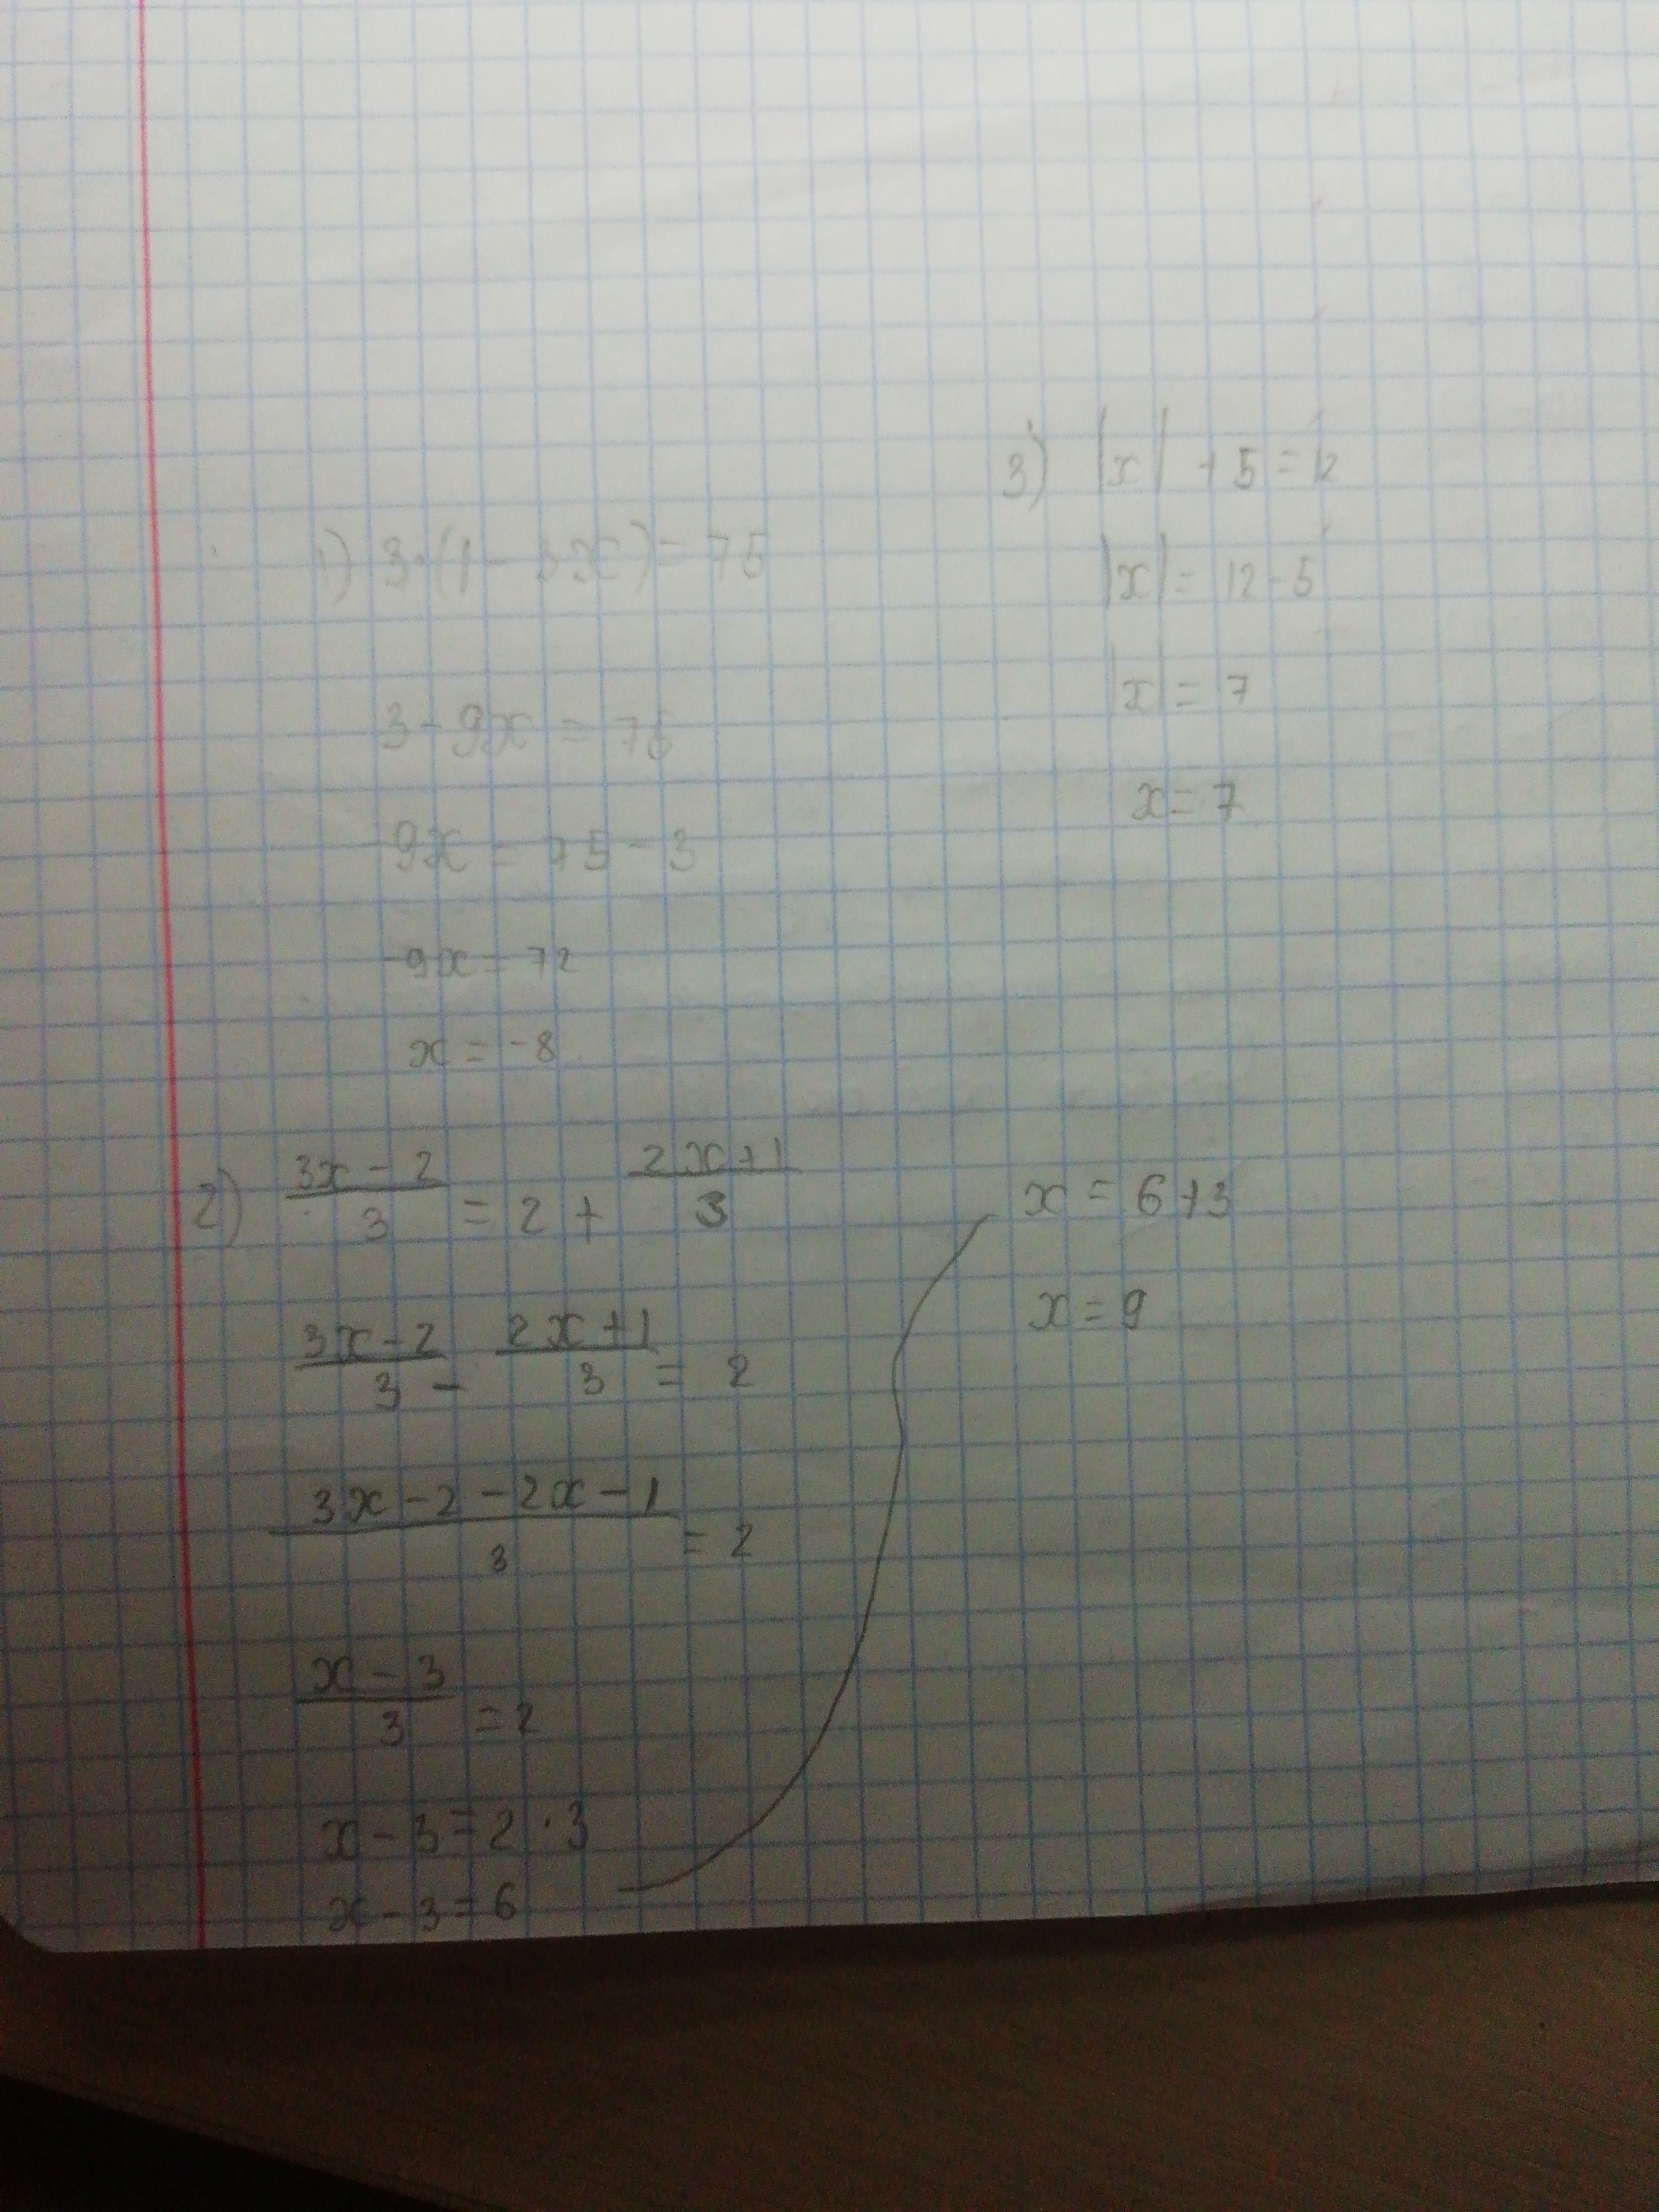 1) 3·(1-3x)=75
3-9x=75
-9x=75-3
-9x=72
x=-8
2) (3x-2)/3 = 2 + (2x+1)/3
(3x-2)/3 - (2x+1)/3 = 2
(3x-2-2x-1)/3 = 2
(x-3)/3 = 2
x-3=2·3
x-3=6
x=6+3
x=9
3) |x|+5=12
|x|=12-5
|x|=7
x=7